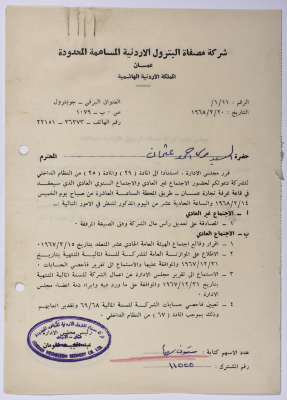 شركة مصفاة البترول الاردنية المساهمة المحدودة
عمان
المملكة الاردنية الهاشمية
الرقم : ١/١١/
التاريخ : ١٩٦٨/٢/٢٠
العنوان البرقي ـ جوبترول
ص . ب ـ ١٠٧٩
رقم الهاتف ـ ٣٦٣٧٣ ـ ٢٢١٥١
حضرة السيد احمد عثمان المحترم
قرر مجلس الادارة ، استنادا الى المادة (٢٩) والمادة (٢٥) من النظام الداخلي
للشركة دعوتكم لحضور الاجتماع غير العادي والاجتماع السنوي العادي الذي سينعقد
في قاعة غرفة تجارة عمـان ـ طريق المحطة الساعة العاشرة من صباح يوم الخميس
والساعة الحادية عشر من اليوم المذكور للنظر في الامور التالية :ـ
أ ـ الاجتماع غير العادي
١ ـ المصادقة على تعديل رأس مال الشركة وفق الصيغة المرفقة ٠
ب ـ الاجتماع العادي
١ ـ اقرار وقائع اجتماع الهيئة العامة الحادي عشر المنعقد بتاريخ ١٩٦٧/٢/١٥
٢ ـ الاطلاع على الموازنة العامة للشركة للسنة المالية المنتهية بتاريخ
١٩٦٧/١٢/٣١ والموافقة عليها والاستماع الى تقرير فاحصي الحسابات ٠
٣ ـ الاستماع الى تقرير مجلس الادارة عن اعمال الشركة للسنة المالية المنتهية
في ١٩٦٧/١٢/٣١ والموافقة على ما ورد فيه وابراء ذمة اعضاء مجلس
الادارة ٠
٤ ـ تعيين فاحصي حسابات الشركة للسنة المالية ٦٩/٦٨ وتقدير اتعابهم
وذلك بموجب المادة (٦٧) من النظام الداخلي ٠
رئيس مجلس الادارة
عدد الاسهم كتابة :
رقم المشترك :
JORDAN PETROLEUM REFINERY CO. LTD.